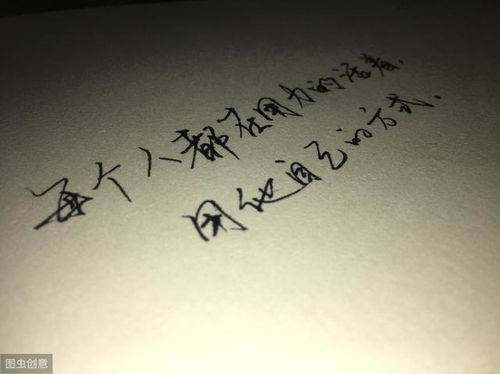 每个人都在用力的活着.
用他自己的方式.
图虫创意